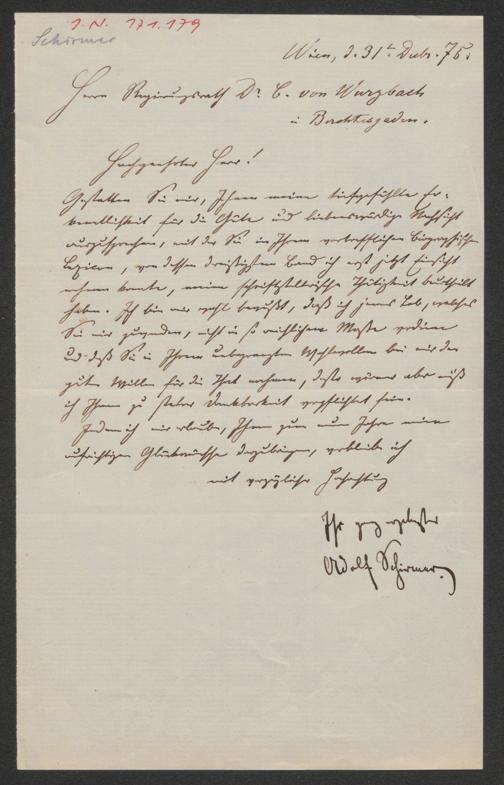 I. N. 171.179
Schirmer
Wien, d. 31t Decbr. 75.
Herrn Regierungsrath Dr. C. von Wurzbach
in Berchtesgaden.
Hochgeehrter Herr!
Gestatten Sie mir, Ihnen meine tiefgefühlte Er-
kenntlichkeit für die Güte und liebenswürdige Nachsicht
auszusprechen, mit der Sie in Ihrem vortrefflichen biographischen
Lexicon, von dessen dreißigsten Band ich erst jetzt Einsicht
nehmen konnte, meine schriftstellerische Thätigkeit beurtheilt
haben. Ich bin mir wohl bewußt, daß ich jenes Lob, welches
Sie mir zuwenden, nicht in so reichlichem Maße verdiene
und daß Sie in Ihrem Wohlwollen bei mir den
guten Willen für die That nahmen, desto wärmer aber muß
ich Ihnen zu steter Dankbarkeit verpflichtet sein.
Indem ich mir erlaube, Ihnen zum neuen Jahre meine
aufrichtigen Glückwünsche darzubringen, verbleibe ich
mit vorzüglicher Hochachtung
Ihr ganz ergebenster
Adolf Schirmer.